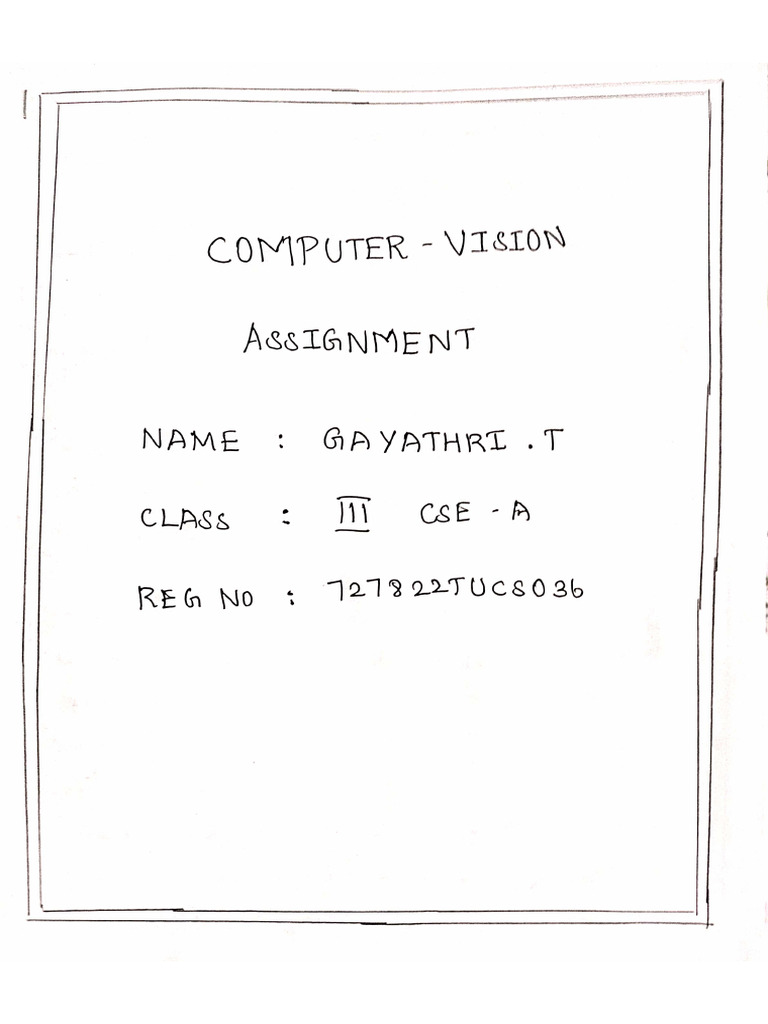 COMPUTER - VISION
ASSIGNMENT
NAME : GAYATHRI . T
CLASS : III CSE - A
REG NO : 727822TUCS036